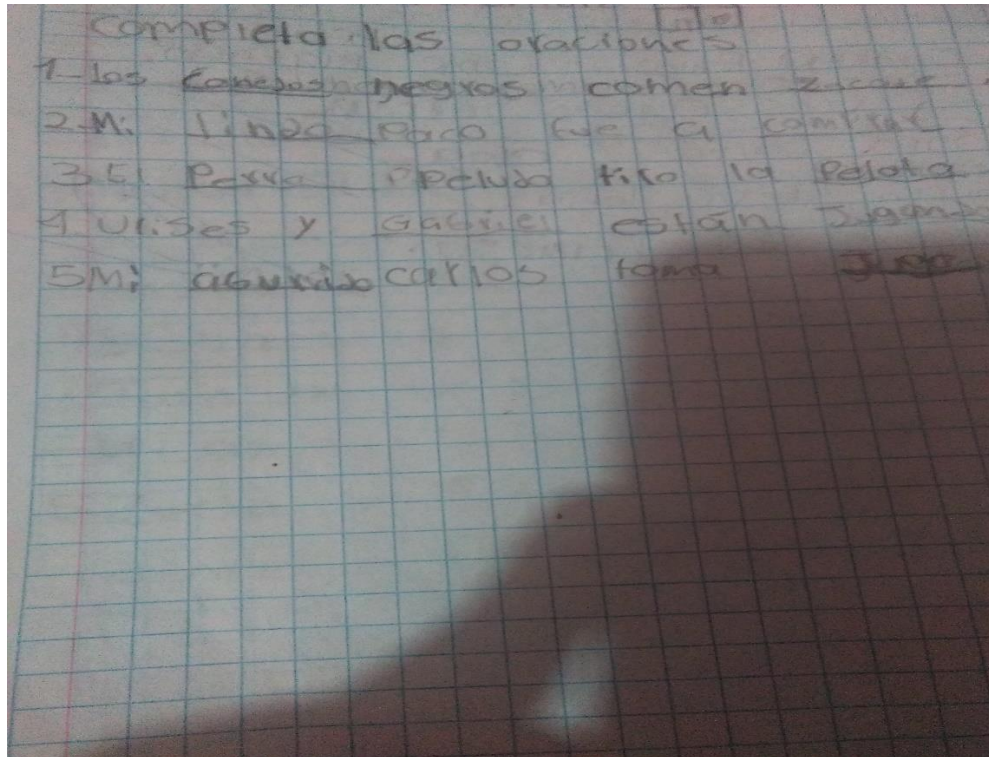 completa las oraciones
1-los conejos negros comen
2-Mi fue a comprar
3 El Perro Peludo tiro la Pelota
4 Ulises y Gabriel están
5 Mi carlos toma